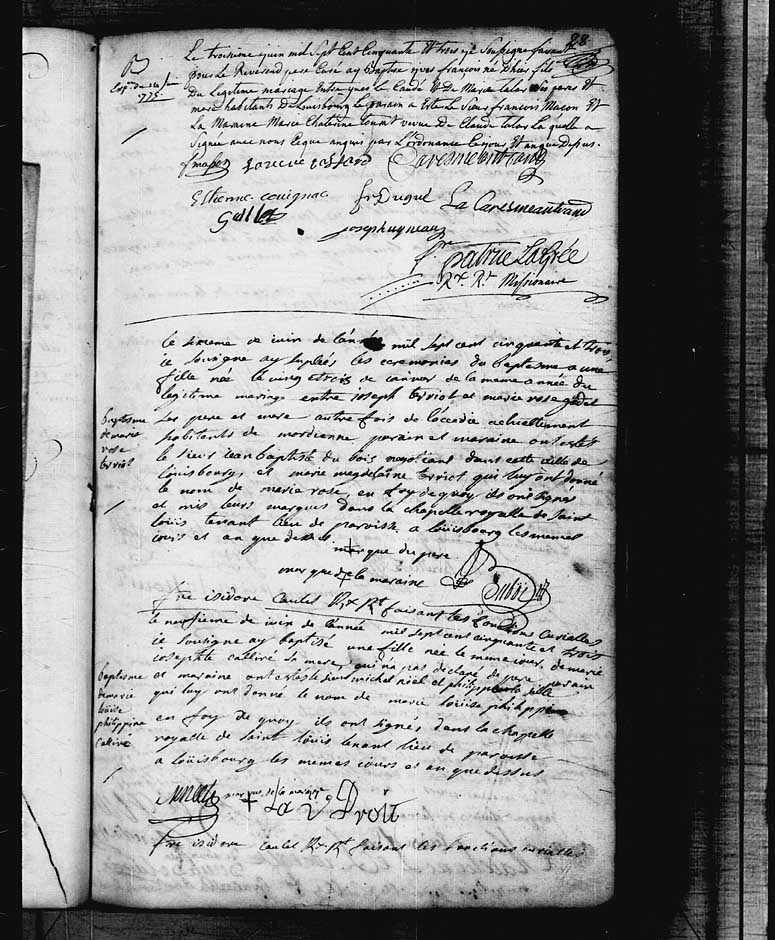 28
Le troisième juin mil Sept Cent Cinquante Et trois je Soussigne faisant
pour Le Reverend pere Curé ay Baptisé yves françois né D'hier fils
Du Legitime mariage Entre yves Le Caudé Et De Marie talar Ses pere Et
mere habitants De Louisbourg Le parain a Esté Le Sieur françois Macon Et
La Maraine Marie Chaterine veuve De Claude talar La quelle a
Signé avec nous Ce que anquis par L'ordonance Le jour Et an que Depus.
B
1775
Estienne couignac
fr Duqué
La Caresmeantrand
Joseph
patrice LaGrée
Rx. Rt. Missionaire
le sixieme de iuin de lánnée mil sept cent cinquante et trois
ie sousigne ay suplées les ceremonies du baptesme a une
fille née le vingt et trois de ianvier de la meme annee du
legitime mariage entre ioseph terriot et marie rose
Les pere et mere autre fois de láccadie actuellement
habitants de mordienne, parain et maraine ont estés
le sieur iean baptiste du bois negotiant dans cette ville de
louisbourg, et marie magdelaine terriot qui luy ont donné
le nom de marie rose, en foy de quoy ils ont signés
et mis leurs marques dans la chapelle royalle de saint
loüis tenant lieu de paroisse a loüisbourg les memes
iours et an que dessus
baptesme
de marie
rose
terriot
marque du pere
marque de la maraine
Duboi
fre isidore Caulet Rx Rt faisant les fonctions Curialles
le neufieme de iuin de lánnée mil sept cent cinquante et trois
ie sousigne ay baptisé une fille née le meme iour, de marie
iosephte calliré sa mere, qui ná pas declaré de pere, parain
et maraine ont estés le sieur michel niel et philippe la ville
qui luy ont donné le nom de marie loüise philippine
en foy de quoy ils ont signés dans la chapelle
royalle de saint loüis tenant lieu de paroisse
a loüisbourg les memes iours et an que dessus
baptesme
de marie
loüise
philippine
calliré
marque de la maraine
La Droit
fre isidore caulet Rx Rt faisant les fonctions curialles